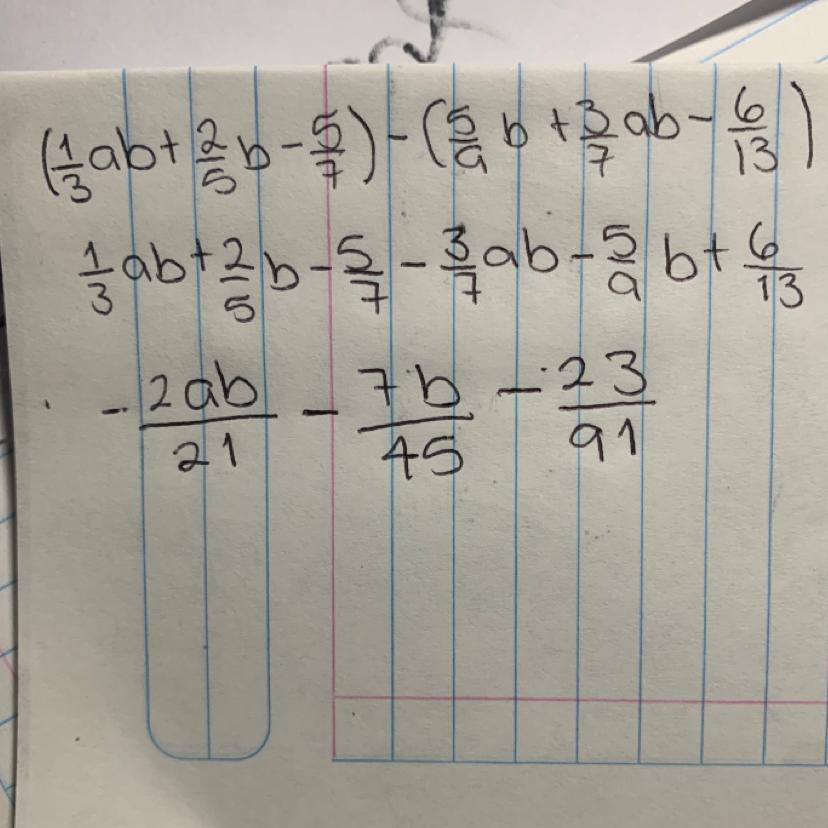 (1/3 ab + 2/5 b - 5/7) - (5/9 b + 3/7 ab - 6/13)
1/3 ab + 2/5 b - 5/7 - 3/7 ab - 5/9 b + 6/13
- 2ab/21 - 7b/45 - 23/91